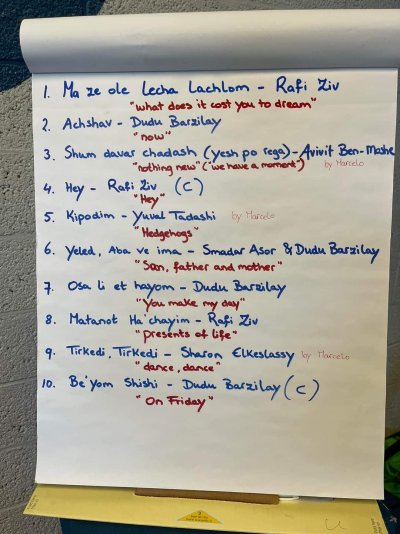 1. Ma ze ole lecha lachlom - Rafi Ziv
"what does it cost you to dream"
2. Achshav - Dudu Barzilay
"now"
3. Shum davar chadash (yesh po rega) - Avivit Ben-Moshe
"nothing new" ("we have a moment") by Marcelo
4. Hey - Rafi Ziv (C)
"Hey"
5. Kipodim - Yuval Tadashi by Marcelo
"Hedgehogs"
6. Yeled, Aba ve ima - Smadar Asor & Dudu Barzilay
"San, father and mother"
7. Osa li et hayom - Dudu Barzilay
"You make my day"
8. Matanot Ha'chayim - Rafi Ziv
"presents of life"
9. Tirkedi, Tirkedi - Sharon Elkeslassy by Marcelo
"dance, dance"
10. Be'Yom Shishi - Dudu Barzilay (C)
"On Friday"